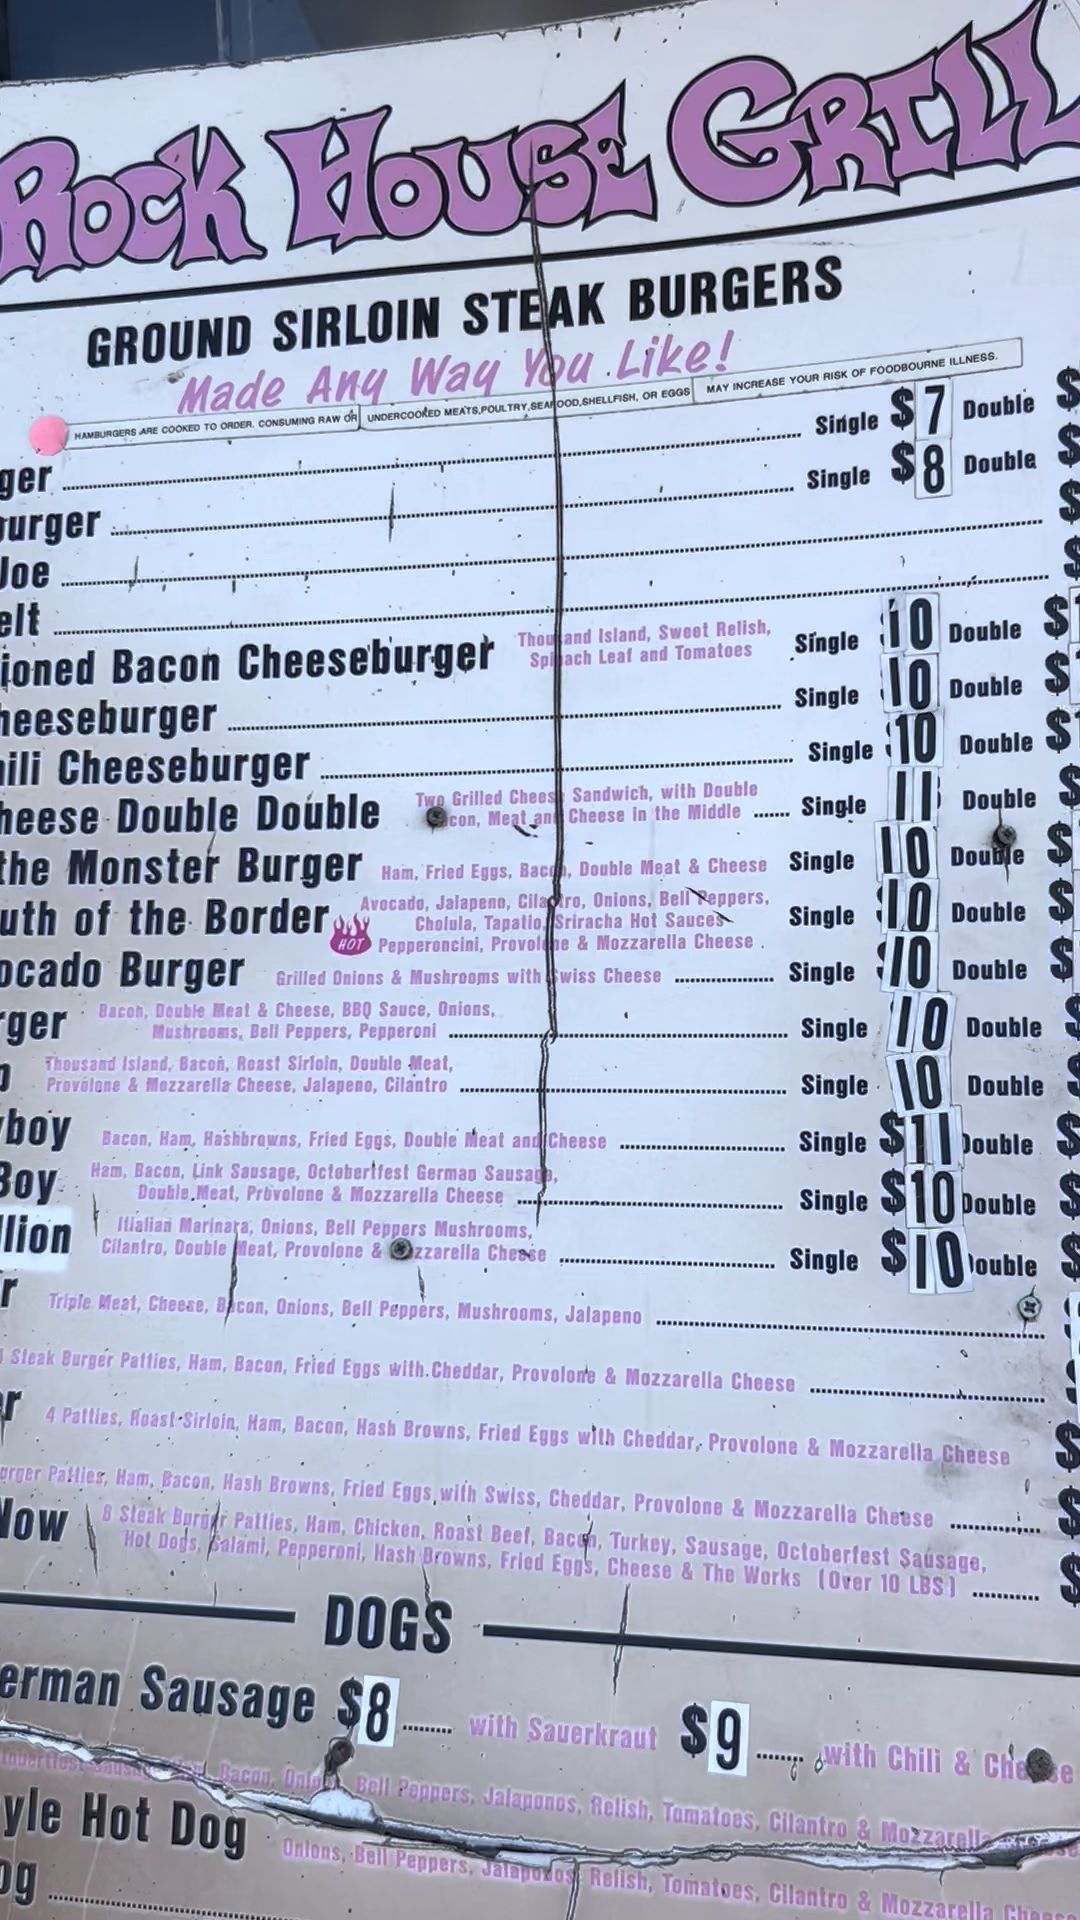 ROCK HOUSE GRILL
GROUND SIRLOIN STEAK BURGERS
Made Any Way You Like!
HAMBURGERS ARE COOKED TO ORDER. CONSUMING RAW OR UNDERCOOKED MEATS,POULTRY,SEAFOOD,SHELLFISH, OR EGGS MAY INCREASE YOUR RISK OF FOODBOURNE ILLNESS.
ger Single $7 Double $
burger Single $8 Double $
Joe $
elt $
ioned Bacon Cheeseburger Thousand Island, Sweet Relish, Single 10 Double $
Spinach Leaf and Tomatoes
heeseburger Single 10 Double $
hili Cheeseburger Single 10 Double $
heese Double Double Two Grilled Cheese Sandwich, with Double Single 11 Double $
Bacon, Meat and Cheese in the Middle
the Monster Burger Ham, Fried Eggs, Bacon, Double Meat & Cheese Single 10 Double $
uth of the Border HOT Avocado, Jalapeno, Cilantro, Onions, Bell Peppers, Single 10 Double $
Cholula, Tapatio, Sriracha Hot Sauces
Pepperoncini, Provolone & Mozzarella Cheese .
ocado Burger Grilled Onions & Mushrooms with Swiss Cheese Single 10 Double $
rger Bacon, Double Meat & Cheese, BBQ Sauce, Onions, Single 10 Double $
Mushrooms, Bell Peppers, Pepperoni
Thousand Island, Bacon, Roast Sirloin, Double Meat, Single 10 Double $
Provolone & Mozzarella Cheese, Jalapeno, Cilantro
boy Bacon, Ham, Hashbrowns, Fried Eggs, Double Meat and Cheese Single $11 Double $
Boy Ham, Bacon, Link Sausage, Octobertfest German Sausage, Single $10 Double $
Double Meat, Provolone & Mozzarella Cheese
llion Itialian Marinara, Onions, Bell Peppers Mushrooms, Single $10 Double $
Cilantro, Double Meat, Provolone & Mozzarella Cheese
r Triple Meat, Cheese, Bacon, Onions, Bell Peppers, Mushrooms, Jalapeno
Steak Burger Patties, Ham, Bacon, Fried Eggs with Cheddar, Provolone & Mozzarella Cheese
er 4 Patties, Roast Sirloin, Ham, Bacon, Hash Browns, Fried Eggs with Cheddar, Provolone & Mozzarella Cheese $
urger Patties, Ham, Bacon, Hash Browns, Fried Eggs with Swiss, Cheddar, Provolone & Mozzarella Cheese $
Now 8 Steak Burger Patties, Ham, Chicken, Roast Beef, Bacon, Turkey, Sausage, Octoberfest Sausage,
Hot Dogs, Salami, Pepperoni, Hash Browns, Fried Eggs, Cheese & The Works (Over 10 LBS) $
DOGS
erman Sausage $8 with Sauerkraut $9 with Chili & Cheese
Bacon, Onions, Bell Peppers, Jalaponos, Relish, Tomatoes, Cilantro & Mozzarella
yle Hot Dog Onions, Bell Peppers, Jalaponos, Relish, Tomatoes, Cilantro & Mozzarella Cheese
og